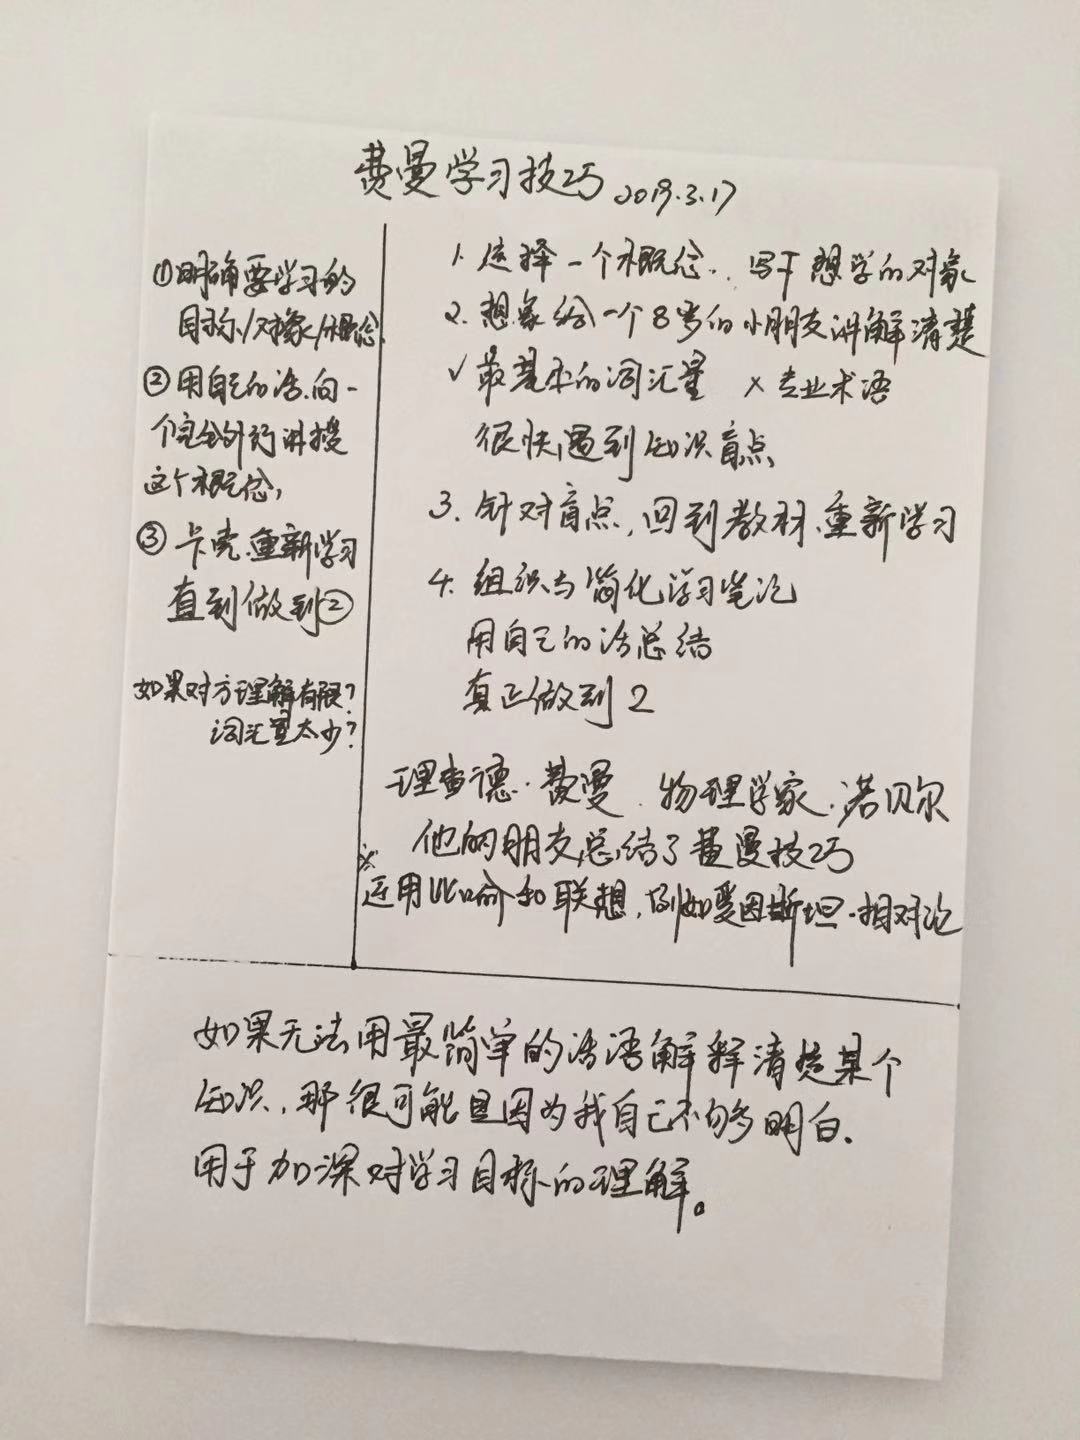 费曼学习技巧 2019.3.17
①明确要学习的
目标/对象/概念.
②用自己的话.向一
个完全外行讲授
这个概念,
③卡壳.重新学习
直到做到②
如果对方理解有限?
词汇量太少?
1.选择一个概念..写下想学的对象
2.想象给一个8岁的小朋友讲解清楚
✓最基本的词汇量 ×专业术语
很快遇到知识盲点
3.针对盲点,回到教材.重新学习
4.组织与简化学习笔记
用自己的话总结
真正做到2
理查德·费曼.物理学家.诺贝尔
他的朋友总结了费曼技巧
※运用比喻和联想,例如爱因斯坦·相对论
如果无法用最简单的话语解释清楚某个
知识,那很可能是因为我自己不够明白.
用于加深对学习目标的理解。